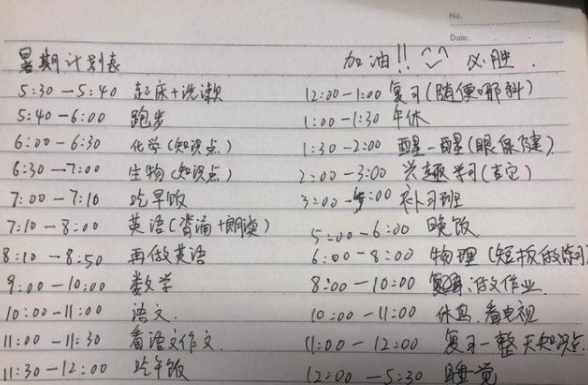 No.
Date.
暑期计划表
加油!! 必胜.
5:30—5:40 起床+洗漱
5:40—6:00 跑步
6:00—6:30 化学(知识点)
6:30—7:00 生物(知识点)
7:00—7:10 吃早饭
7:10—8:00 英语(背诵+朗读)
8:10—8:50 再做英语
9:00—10:00 数学
10:00—11:00 语文.
11:00—11:30 看语文作文
11:30—12:00 吃午饭
12:00—1:00 复习(随便哪科)
1:00—1:30 午休
1:30—2:00 醒一醒(眼保健)
2:00—3:00 兴趣学习(吉它)
3:00—5:00 补习班
5:00—6:00 晚饭
6:00—8:00 物理(短板做练习
8:00—10:00 做作业
10:00—11:00 休息.看电视
11:00—12:00 复习一整天知识点.
12:00—5:30 睡觉